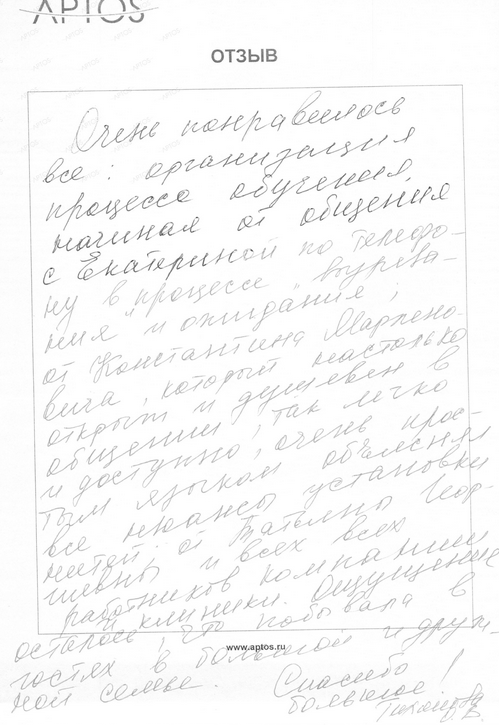 APTOS
ОТЗЫВ
Очень понравилось
все: организация
процесса обучения,
начиная от общения
с Екатериной по телефо-
ну в процессе "вызрева-
ния" и ожидания;
от Константина Марлено-
вича, который настолько
открыт и душевен в
общении, так легко
и доступно, очень прос-
тым языком объяснял
все нюансы установки
нитей; от Татьяны Геор-
гиевны и всех всех
работников компании
и клиники. Ощущение
осталось, что побывала в
гостях в большой и друж-
ной семье. Спасибо
большое!
www.aptos.ru